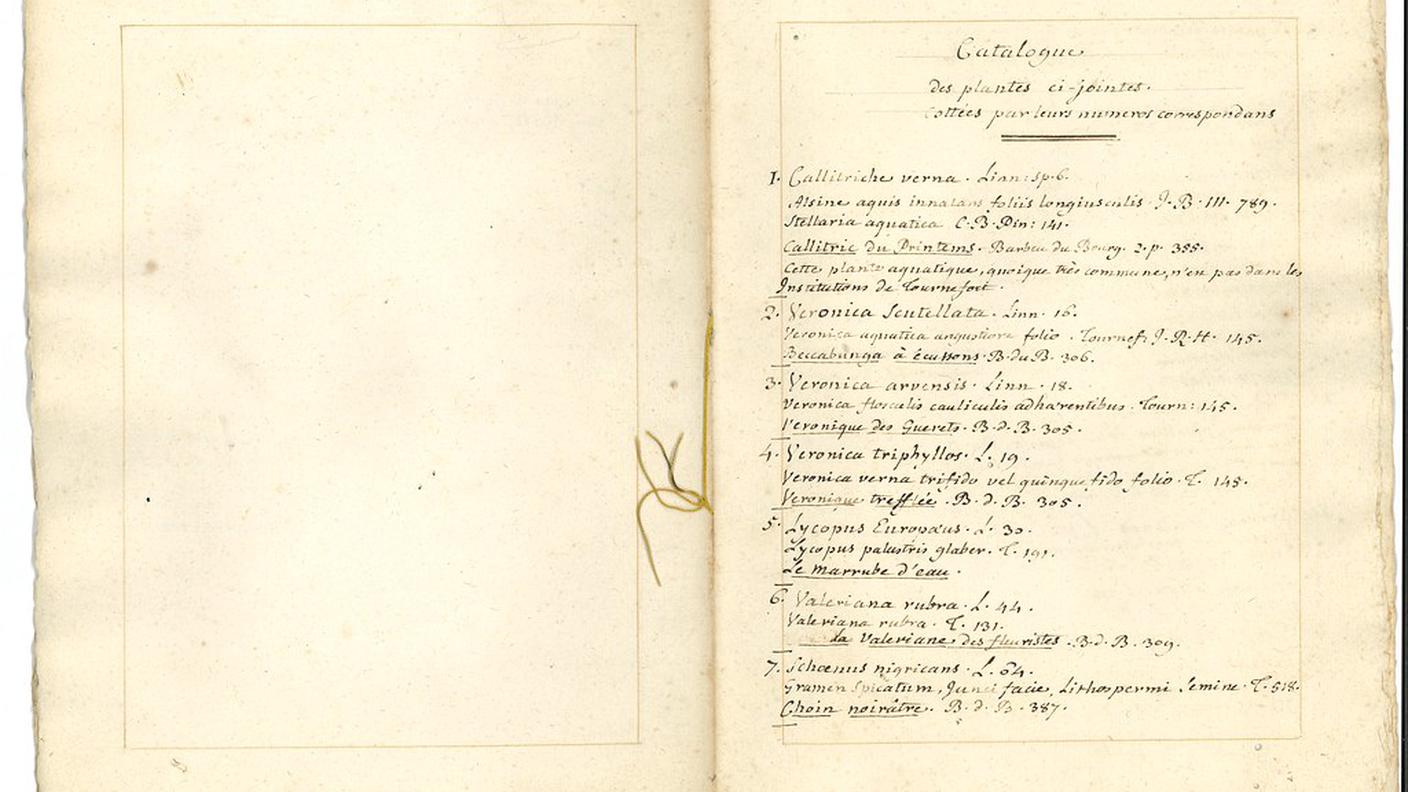 Catalogue
des plantes ci-jointes.
Cottées par leurs numeros correspondans
1. Callitriche verna. Linn: sp. 6.
Alsine aquis innatans foliis longiusculis. J. B. III. 789.
Stellaria aquatica C. B. Pin: 141.
Callitric du Printems. Barbeu du Bourg. 2. p. 355.
Cette plante aquatique, quoique très commune, n'en pas dans les
Institutions de Tournefort.
2. Veronica Scutellata. Linn. 16.
Veronica aquatica angustiore folio. Tournef: J. R. H. 145.
Beccabunga à écussons. B. du B. 306.
3. Veronica arvensis. Linn. 18.
Veronica flosculis cauliculis adhærentibus. Tourn: 145.
Veronique des Guerets. B. d. B. 305.
4. Veronica triphyllos. L. 19.
Veronica verna trifido vel quinquefido folio. T. 145.
Veronique trefflée. B. d. B. 305.
5. Lycopus Europæus. L. 30.
Lycopus palustris glaber. T. 191.
Le marrube d'eau.
6. Valeriana rubra. L. 44.
Valeriana rubra. T. 131.
la Valeriane des fleuristes. B. d. B. 309.
7. Schoenus nigricans. L. 64.
Gramen Spicatum, Junci facie, Lithospermi Semine. T. 518.
Choin noirâtre. B. d. B. 387.